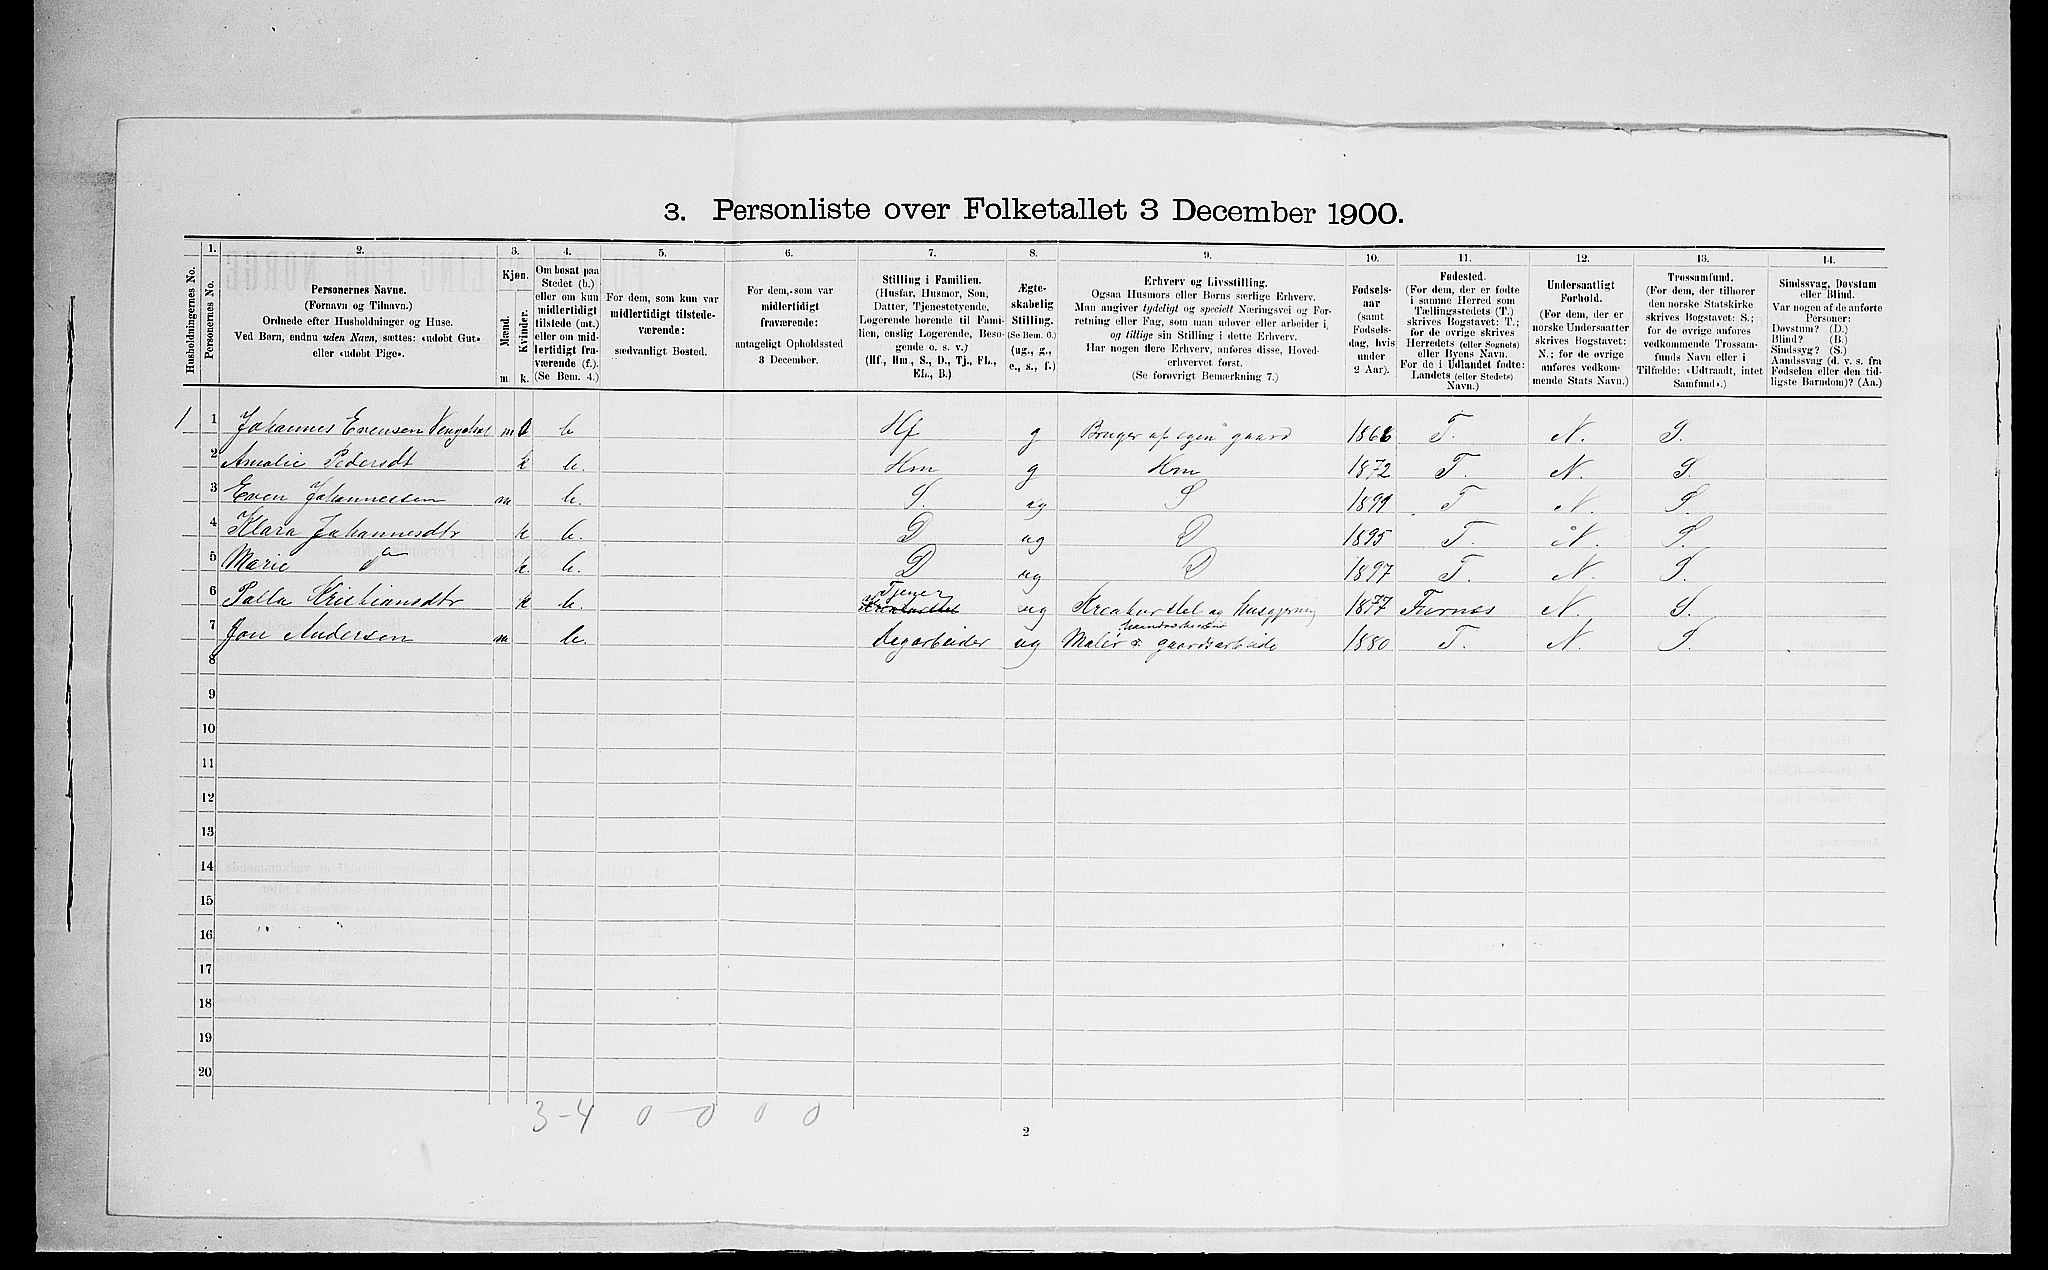 3. Personliste over Folketallet 3 December 1900.
Husholdningernes No.
1. Personernes No.
2. Personernes Navne. (Fornavn og Tilnavn.) Ordnede efter Husholdninger og Huse. Ved Børn, endnu uden Navn, sættes: «udøbt Gut» eller «udøbt Pige».
3. Kjøn. Mænd. m. Kvinder. k.
4. Om bosat paa Stedet (b.) eller om kun midlertidigt tilstede (mt.) eller om midlertidigt fraværende (f.). (Se Bem. 4.)
5. For dem, som kun var midlertidigt tilstedeværende: sædvanligt Bosted.
6. For dem, som var midlertidigt fraværende: antageligt Opholdssted 3 December.
7. Stilling i Familien. (Husfar, Husmor, Søn, Datter, Tjenestetyende, Logerende hørende til Familien, enslig Logerende, Besøgende o. s. v.) (Hf., Hm., S., D., Tj., FL., EL., B.)
8. Ægteskabelig Stilling. (Se Bem. 6.) (ug., g., e., s., f.)
9. Erhverv og Livsstilling. Ogsaa Husmors eller Børns særlige Erhverv. Man angiver tydeligt og specielt Næringsvei og Forretning eller Fag, som man udøver eller arbeider i, og tillige sin Stilling i dette Erhverv. Har nogen flere Erhverv, anføres disse, Hovederhvervet først. (Se forøvrigt Bemærkning 7.)
10. Fødselsaar (samt Fødselsdag, hvis under 2 Aar).
11. Fødested. (For dem, der er fødte i samme Herred som Tællingsstedets (T.) skrives Bogstavet: T.; for de øvrige skrives Herredets (eller Sognets) eller Byens Navn. For de i Udlandet fødte: Landets (eller Stedets) Navn.)
12. Undersaatligt Forhold. (For dem, der er norske Undersaatter skrives Bogstavet: N.; for de øvrige anføres vedkommende Stats Navn.)
13. Trossamfund. (For dem, der tilhører den norske Statskirke skrives Bogstavet: S.; for de øvrige anføres vedkommende Trossamfunds Navn eller i Tilfælde: «Udtraadt, intet Samfund».)
14. Sindssvag, Døvstum eller Blind. Var nogen af de anførte Personer: Døvstum? (D.) Blind? (B.) Sindssyg? (S.) Aandssvag (d. v. s. fra Fødselen eller den tidligste Barndom)? (Aa.)
1 1 Johannes Evensen m b Hf g Bruger af egen gaard T. N. S.
2 Amalie Pedersdt k b. Hm g Hm 1872 T. N. S.
3 Even Johannessen m b. S. ug S T N. S.
4 Klara Johannesdtr k b. D ug D 1895 T. N. S.
5 Marie do k. b. D ug D 1897 T. N. S.
6 Kristiansdtr k b. Tjener ug Kreaturstel og Husgjerning 1877 Furnes N. S.
7 Jon Andersen m b. Dagarbeider ug Maler & gaardsarbeide 1880 T. N. S.
8
9
10
11
12
13
14
15
16
17
18
19
20
3-4 0-0 0 0
2